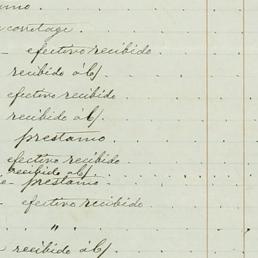 corretage.
efectivo recibido
recibido á l/
efectivo recibido
recibido á l/
prestamo
efectivo recibido
recibido á l/
prestamo
efectivo recibido
" .
recibido á l/